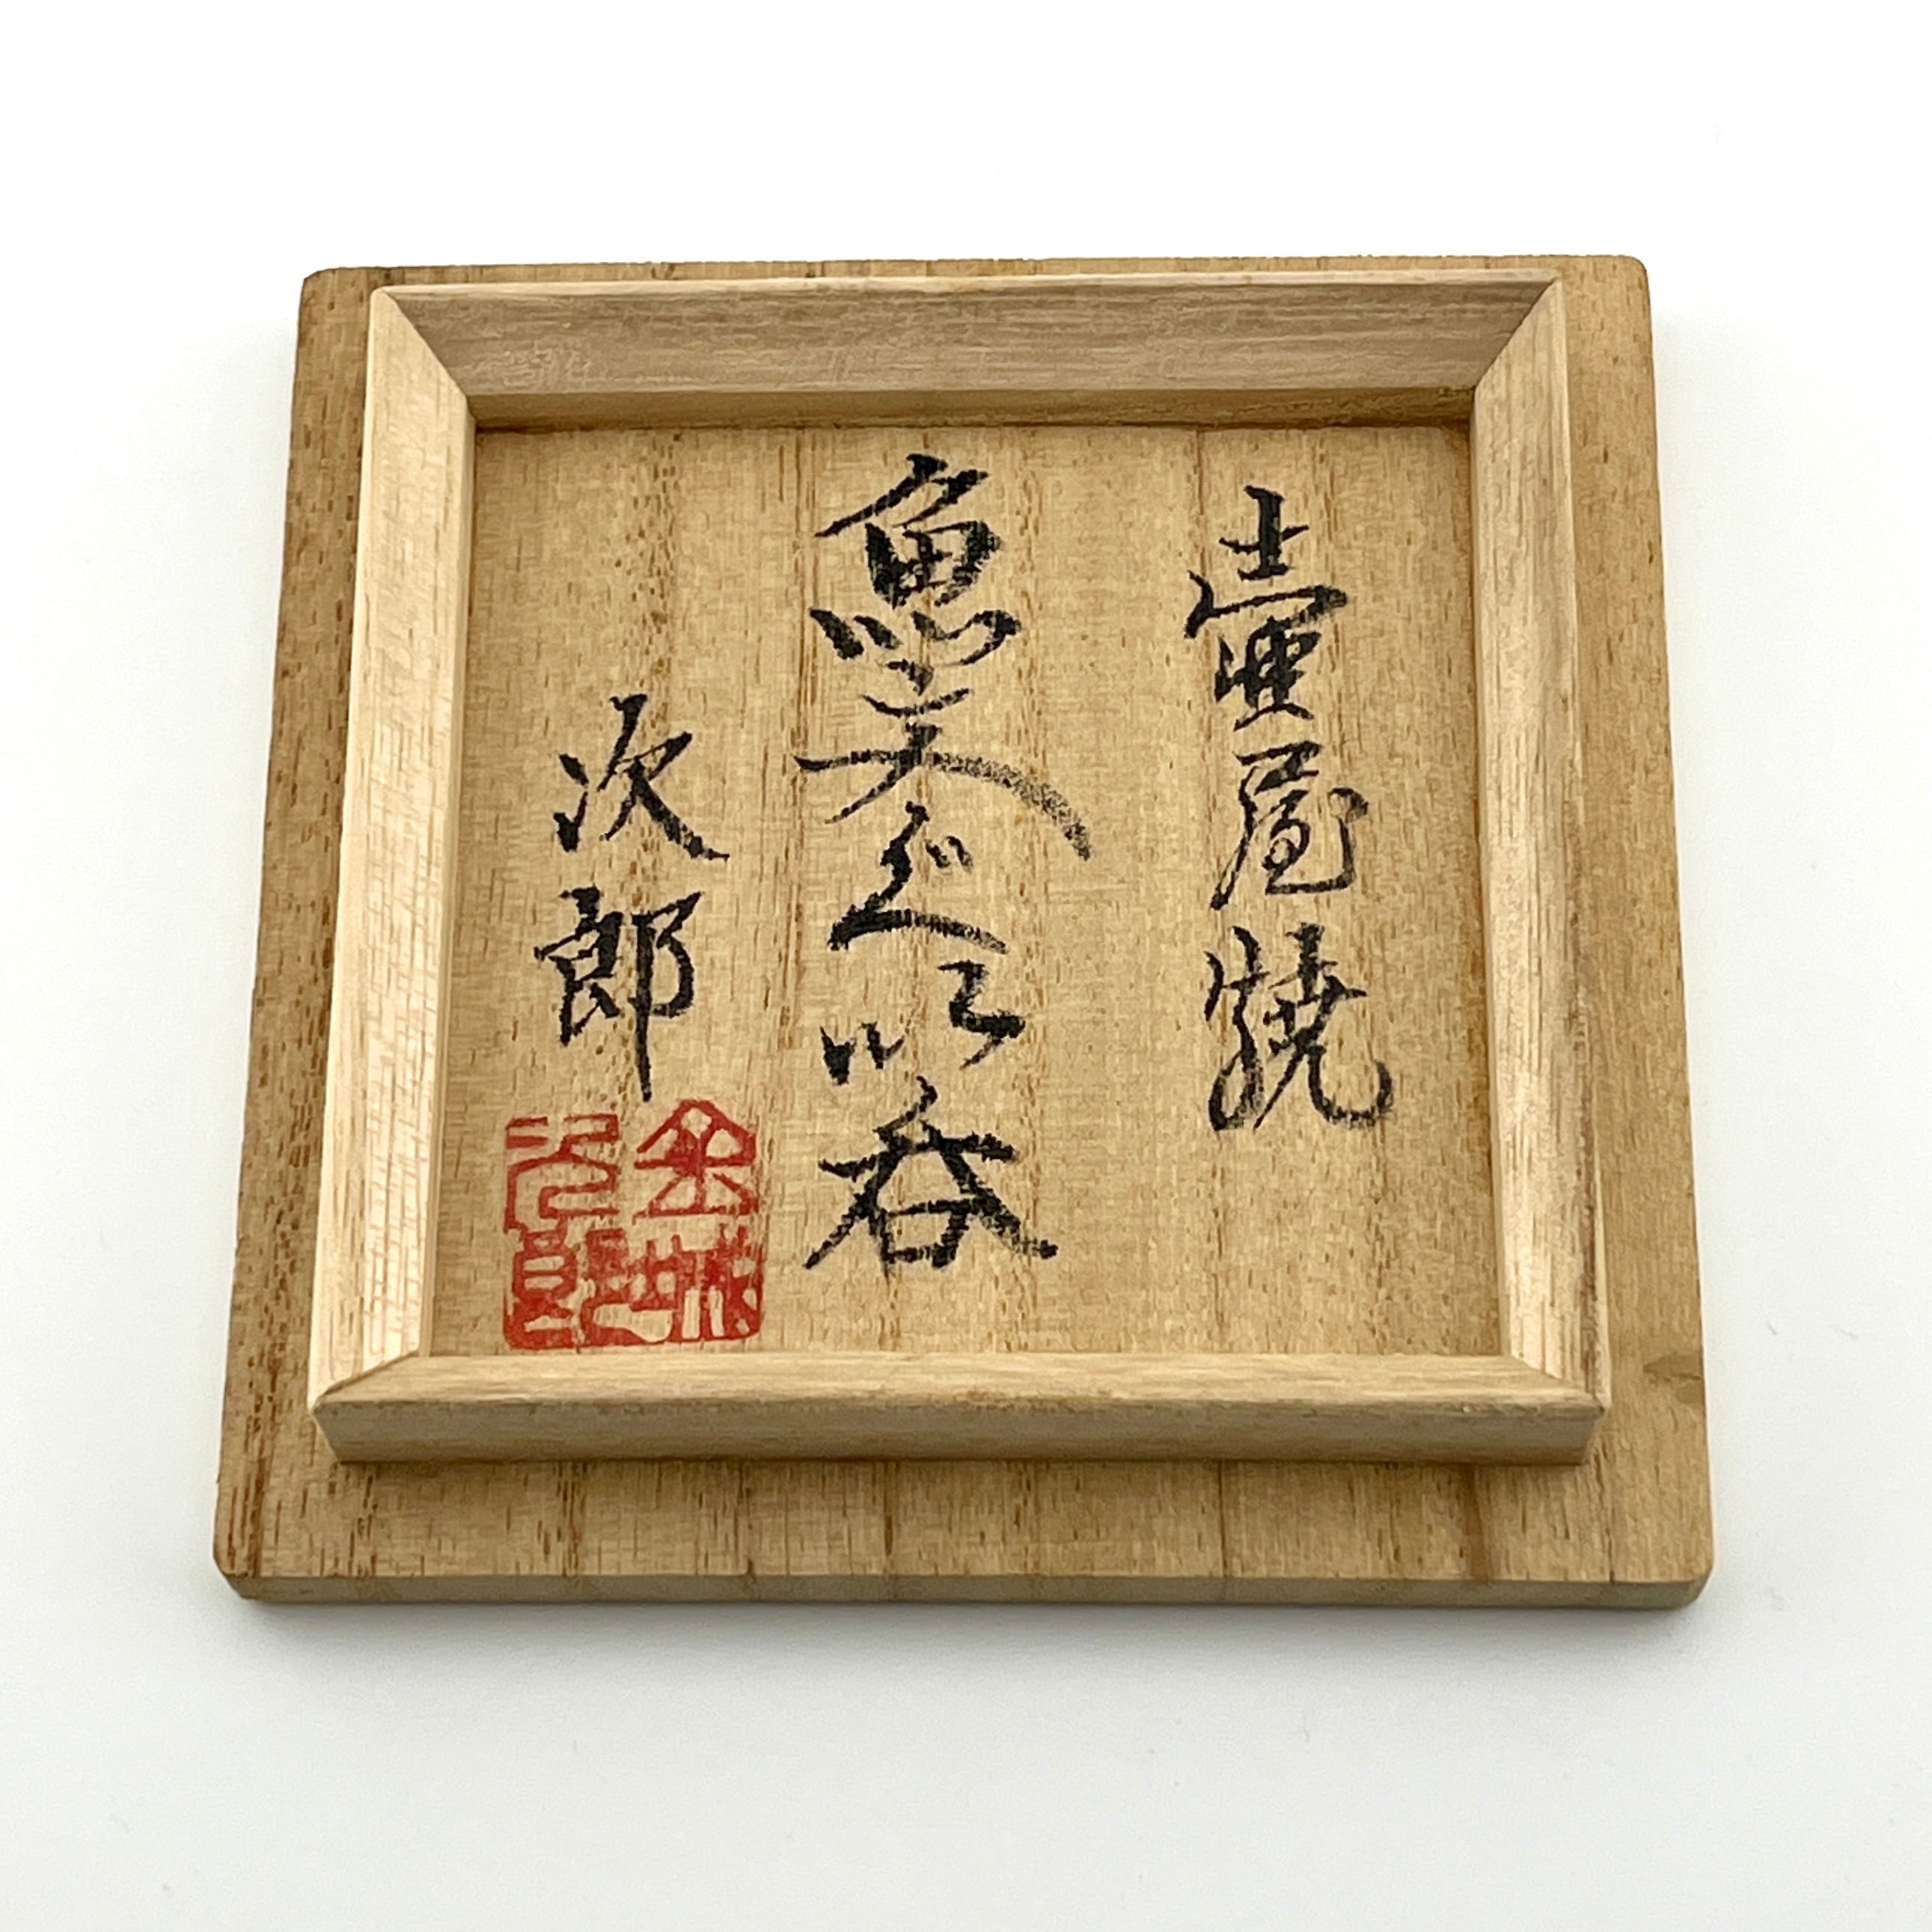 壷屋焼
魚文ぐい呑
次郎
金城次郎